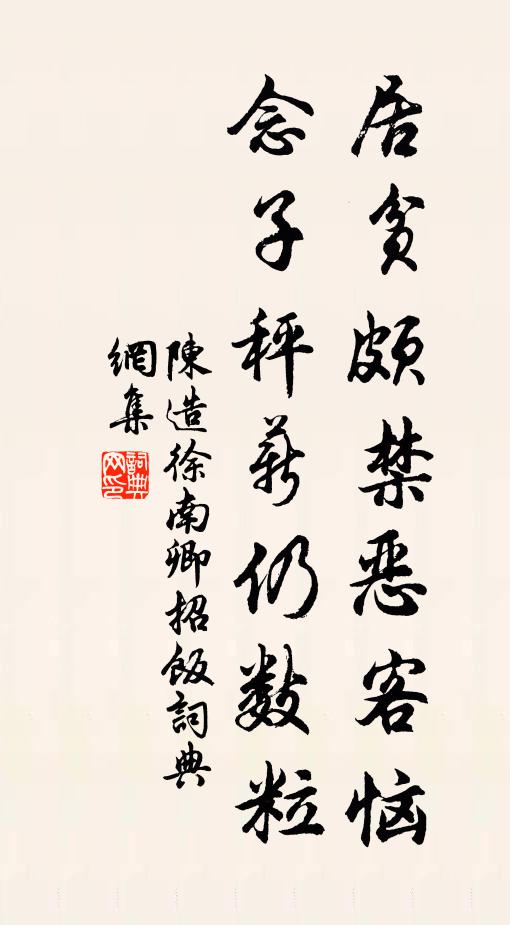 居贫颇禁恶客恼
念子秤薪仍数粒
陳造徐南卿招飯詞典
網集
詞典网印